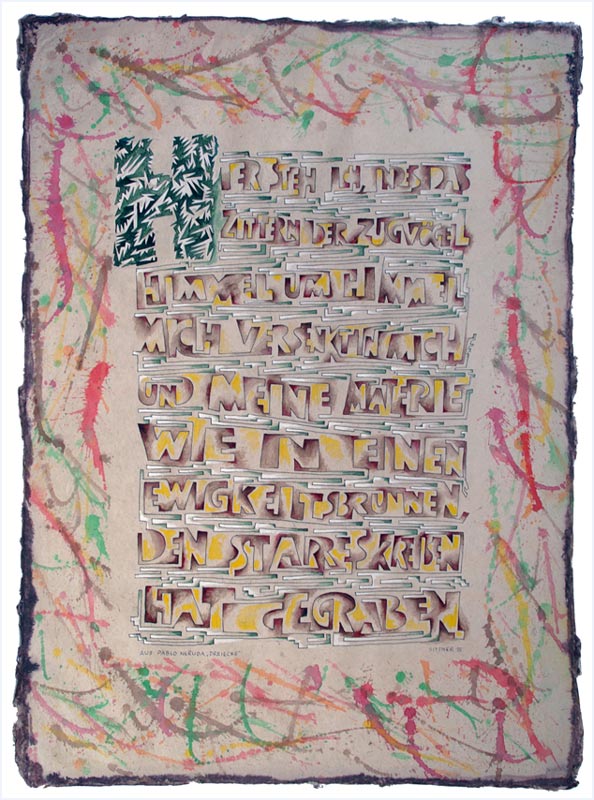 HIER STEH ICH, INDES DAS
ZITTERN DER ZUGVÖGEL
HIMMEL UM HIMMEL
MICH VERSENKT IN MICH
UND MEINE MATERIE
WIE IN EINEN
EWIGKEITSBRUNNEN,
DEN STARRES KREISEN
HAT GEGRABEN.
AUS PABLO NERUDA „DREIECKE“